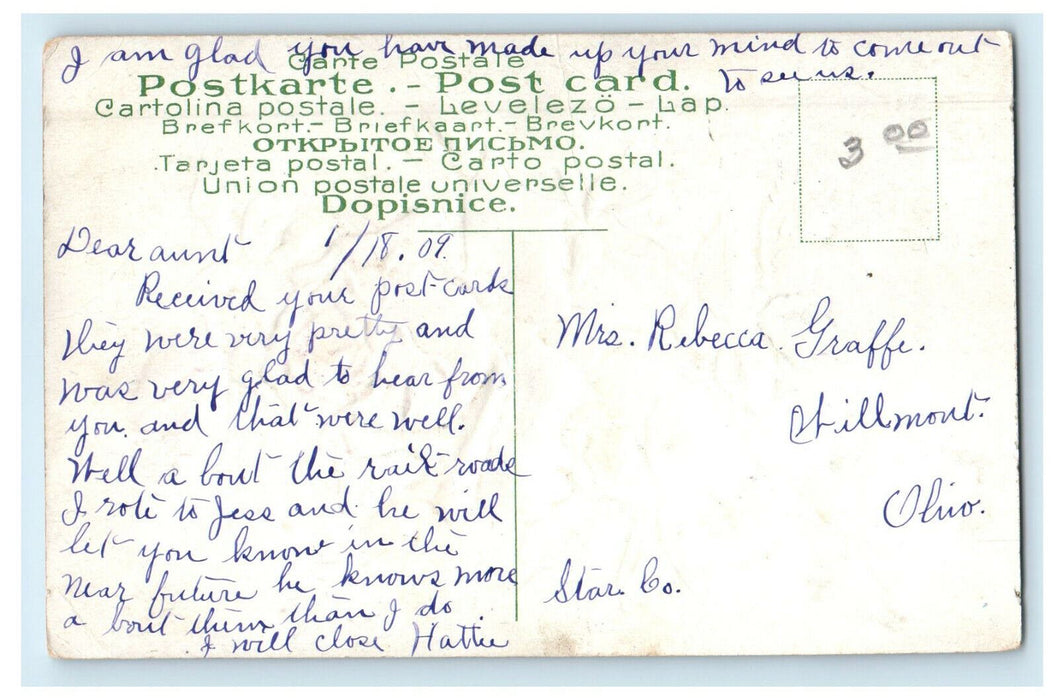 I am glad you have made up your mind to come out
to see us.
Carte Postale
Postkarte. - Post card.
Cartolina postale. - Levelezö - Lap.
Brefkort.- Briefkaart.- Brevkort.
ОТКРЫТОЕ ПИСЬМО.
Tarjeta postal. - Carto postal.
Union postale universelle.
Dopisnice.
3 00
Dear aunt 1/18.09.
Received your post-cards
they were very pretty and
was very glad to hear from
you. and that were well.
Well a bout the rail-roads
I rote to Jess and he will
let you know in the
near future he knows more
a bout them than I do.
I will close Hattie
Mrs. Rebecca Graffe.
Willmont.
Ohio.
Star. Co.